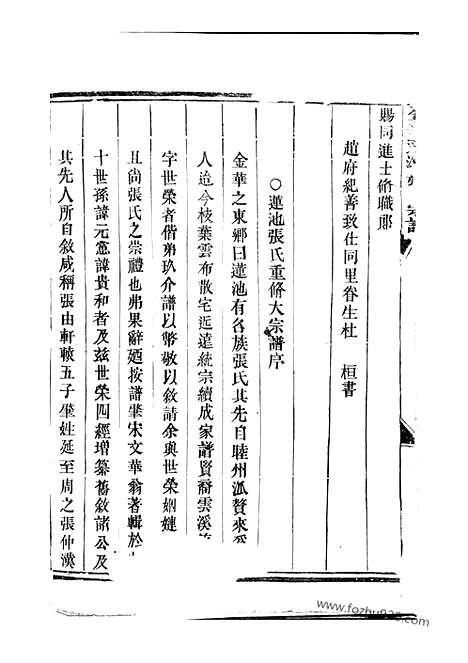 賜同進士脩職郎
趙府紀善致仕同里眷生杜 桓書
○蓮池張氏重脩大宗譜序
金華之東鄉曰蓮池有各族張氏其先自睦州派贅來爲
人迨今枝葉雲布散宅近遠統宗續成家譜賢裔雲溪
字世榮者偕弟玖介譜以幣敬以敘請余與世榮姻婕
且尙張氏之崇禮也弗果辭廼按譜肇宋文華翁著輯於
十世孫諱元憲諱貴和者及兹世榮四經增纂舊敘諸公及
其先人所自敘咸稱張由軒轅五子肇姓延至周之張仲漢
www.fozhu920.com